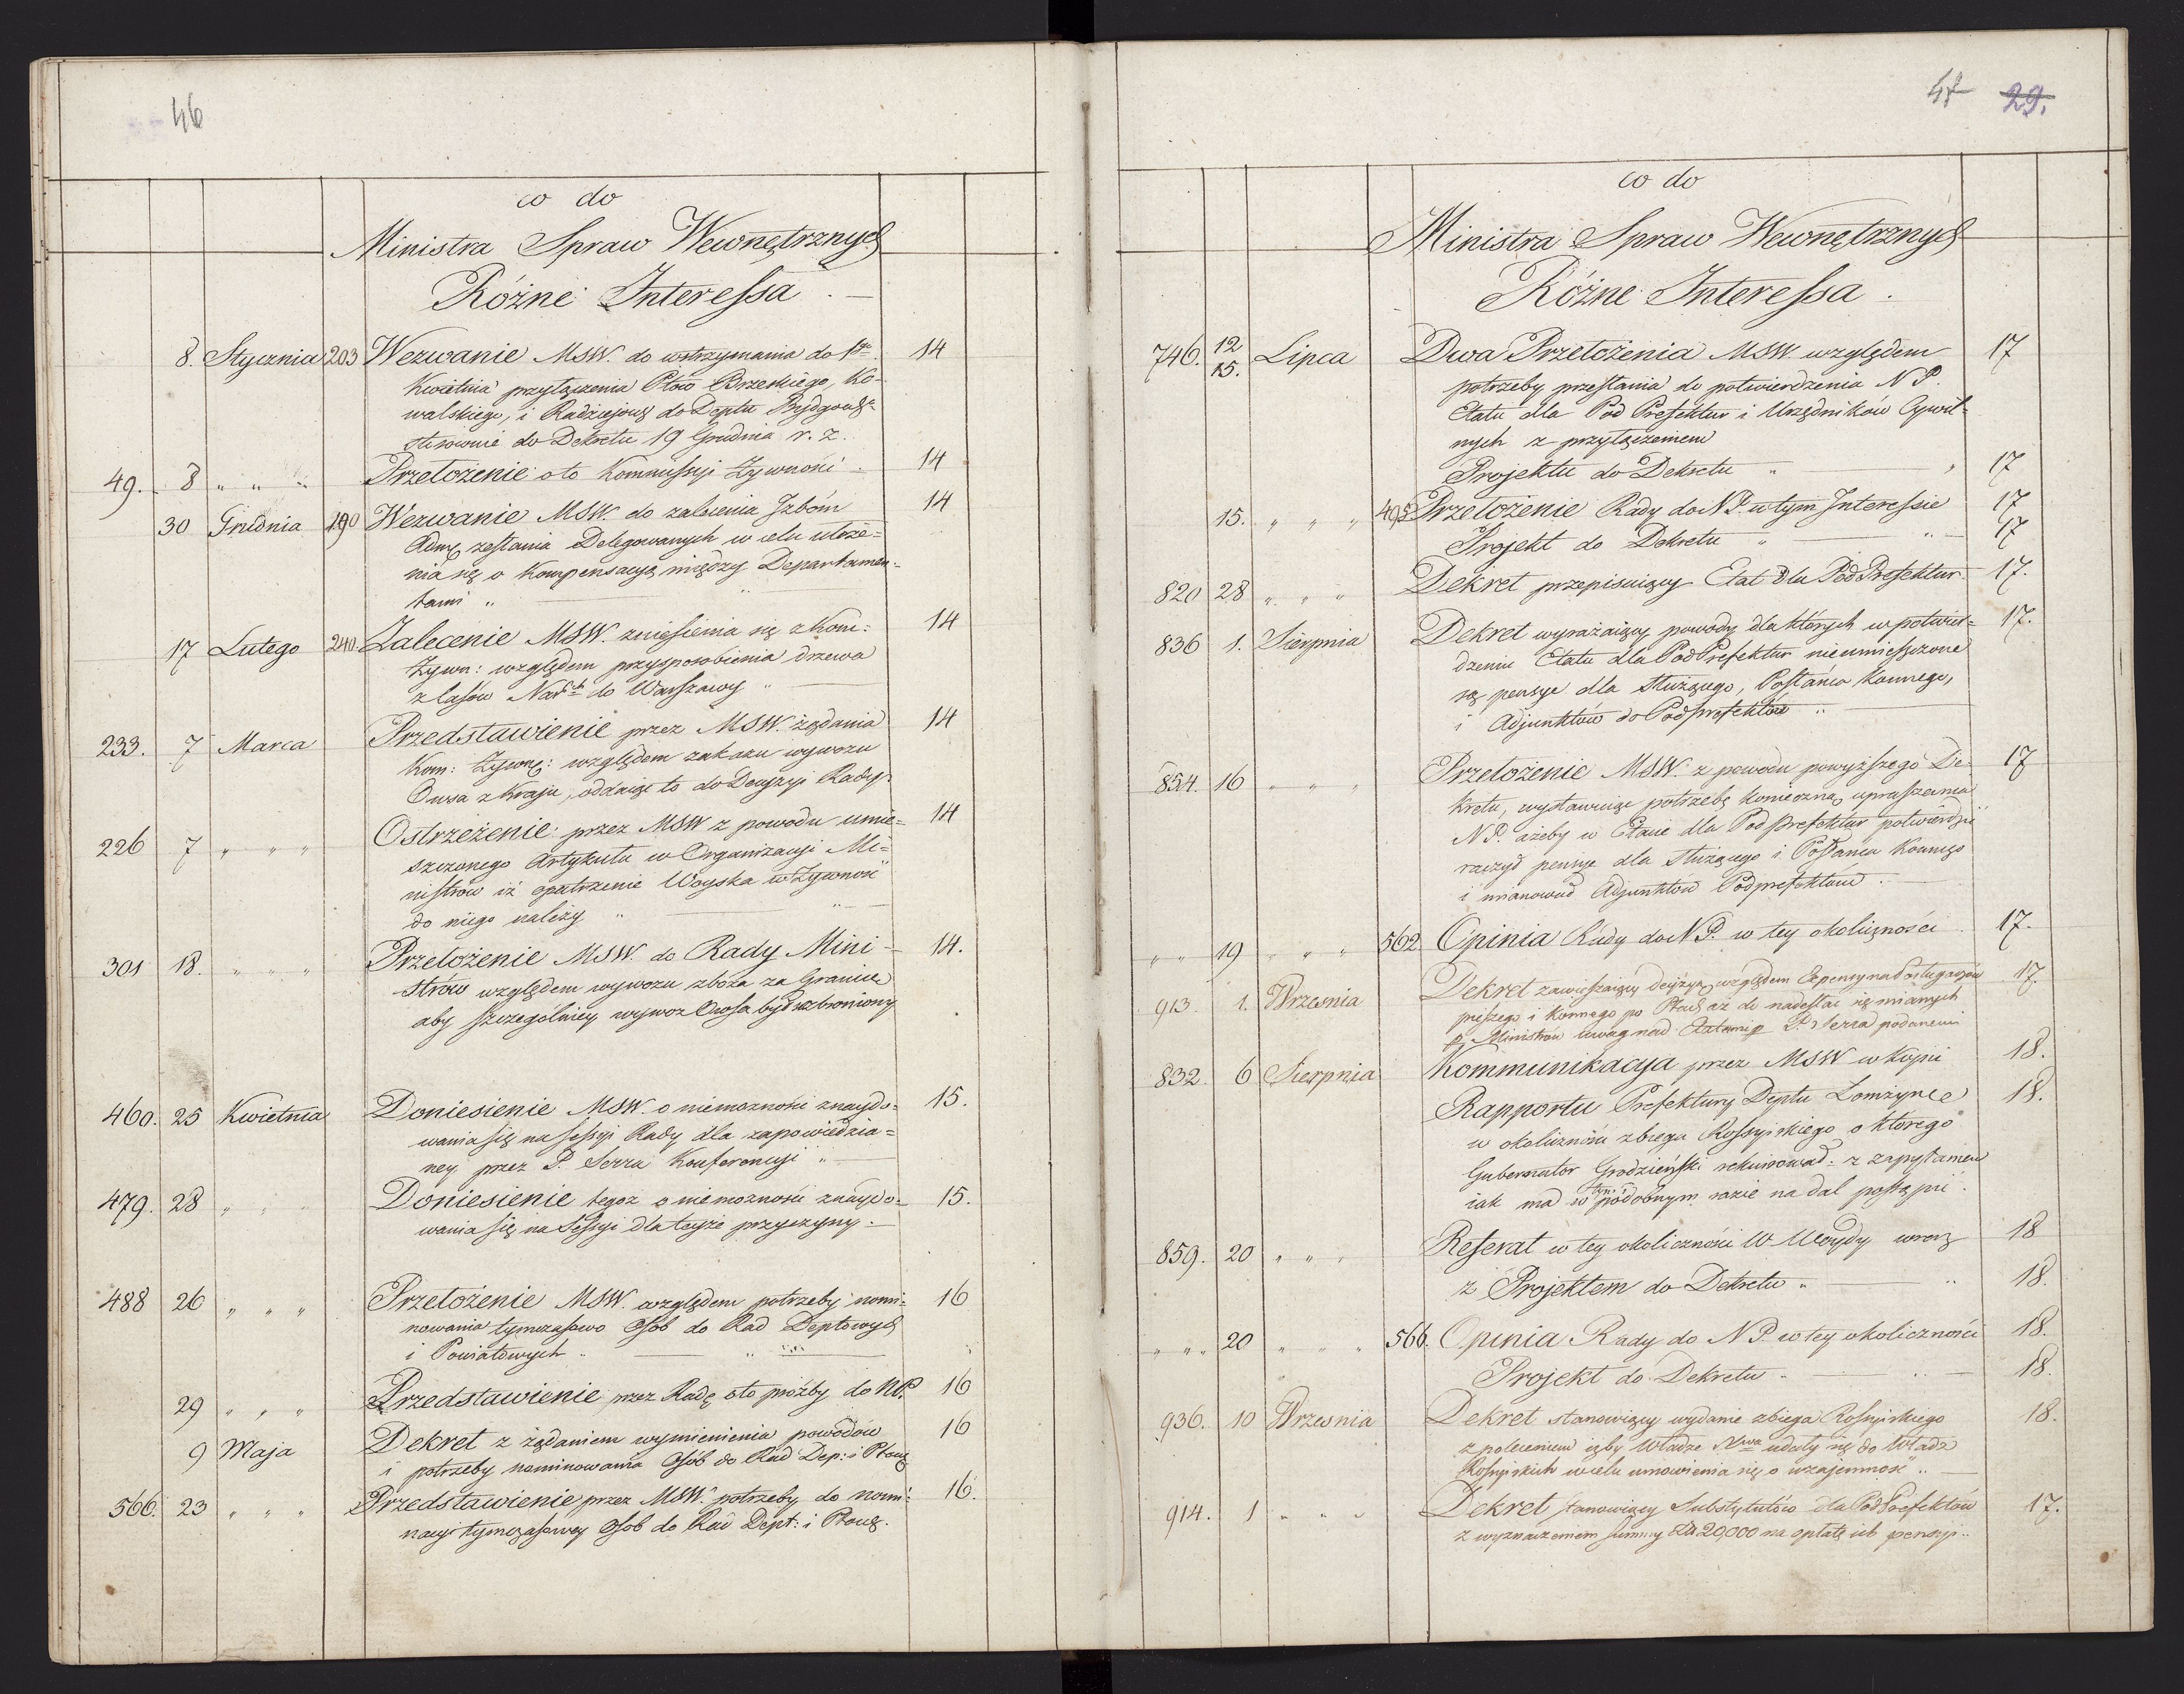 46
co do
Ministra Spraw Wewnętrznych
Różne Interessa . —
8. Stycznia 203 Wezwanie MSW. do wstrzymania do 1go 14
Kwietnia przyłączenia Ptow Brzeskiego, Ko-
walskiego, i Radziejows do Deptu Bydgoskg
stosownie do Dekretu 19 Grudnia r. z.
49. 8 " " " Przełożenie o to Kommissyi Żywności . 14
30 Grudnia 190 Wezwanie MSW. do zalecenia Izbóm 14
Admꝫ zesłania Delegowanych w celu ułoże=
nia się o Kompensacyą między Departamen-
tami " — "
17 Lutego 240. Zalecenie MSW. zniesienia się z Kom: 14
Żywn: względem przysposobienia drzewa
z lasów Nards do Warszawy " —
233. 7 Marca Przedstawienie przez MSW. żądania 14
Kom: Żywnꝫ: względem zakazu wywozu
Owsa z Kraju, oddaiąc to do Decyzyi Rady.
226 7 " " " Ostrzeżenie przez MSW z powodu umie= 14
szczonego Artykułu w Organizacyi Mi=
nistrów iż opatrzenie Woyska w Żywność
do niego należy " — " —
301 18. " " " Przełożenie MSW. do Rady Mini- 14.
strów względem wywozu zboża za Granicę
aby szczególniey wywoz Owsa był wzbroniony
460. 25 Kwietnia Doniesienie MSW. o niemożności znaydo= 15.
wania się na Sessyi Rady dla zapowiedzia=
ney przez P. Serra Konferencyi " —
479. 28 " " " Doniesienie tegoż o niemożności znaydo- 15.
wania się na Sessyi dla teyże przyczyny . —
488 26 " " " Przełożenie MSW. względem potrzeby nomi= 16
nowania tymczasowo Osób do Rad Deptowych
i Powiatowych " — " —
29 " " " Przedstawienie przez Radę o to prozby do NP. 16
9 Maja Dekret z żądaniem wymienienia powodów 16
i potrzeby nominowania Osób do Rad Dep: i Ptowꝫ
566. 23 " " " Przedstawienie przez MSW. potrzeby do nomi- 16.
nacyi tymczasowey Osob do Rad Dept: i Ptowꝫ.
47 29.
co do
Ministra Spraw Wewnętrznych
Różne Interessa .
746. 12 15. Lipca Dwa Przełożenia MSW. względem 17
potrzeby przesłania do potwierdzenia N P.
Etatu dla Pod Prefektur i Urzędników Cywil-
nych z przyłączeniem
Projektu do Dekretu " 17
15. " " " 495 Przełożenie Rady do N.P. w tym Interessie 17
Projekt do Dekretu " — " — 17
820 28 " " " Dekret przepisuiący Etat dla Pod Prefektur 17.
836 1. Sierpnia Dekret wyrażaiący powody dla których w potwier- 17.
dzeniu Etatu dla Pod Prefektur nieumieszczone
są pensye dla Służącego, Posłańca Konnego,
i Adjunktów do Podprefektów " —
854. 16 " " " Przełożenie MSW. z powodu powyższego De- 17
kretu, wystawuiąc potrzebę konieczną, upraszania
N P. ażeby w Etacie dla Pod prefektur potwierdzić
raczył pensye dla Służącego i Posłańca Konnego
i mianował Adjunktów Podprefektom . —
" " 19 " " " 562. Opinia Rady do N P. w tey okoliczności . 17.
913. 1. Września Dekret zawieszaiący decyzyą względem Expensy na Posługaczów 17.
pieszego i Konnego po Ptach aż do nadesłać się mianych
p. Ministrów uwag nad Etatami p. P. Serra podanemi
832. 6 Sierpnia Kommunikacya przez MSW w Kopii 18.
Rapportu Prefektury Deptu Łomżyńce 18.
w okoliczności zbiega Rossyiskiego o którego
Gubernator Grodzieński rekwirował: z zapytaniem
iak ma w tym podobnym razie na dal postąpić .
859. 20 " " " Referat w tey okoliczności W Woydy wraz 18
z Projektem do Dekretu " — " 18.
" " " 20 " " " 566. Opinia Rady do N P. w tey okoliczności 18.
Projekt do Dekretu . — " — 18.
936. 10 Września Dekret stanowiący wydanie zbiega Rossyiskiego 18.
z poleceniem iżby Władze Nwe udały się do Władz
Rossyiskich w celu umówienia się o wzajemność " —
914. 1 " " " Dekret stanowiący Substytutów dla Pod Prefektów 17.
z wyznaczeniem summy Zł 20,000 na opłatę ich pensyi ..